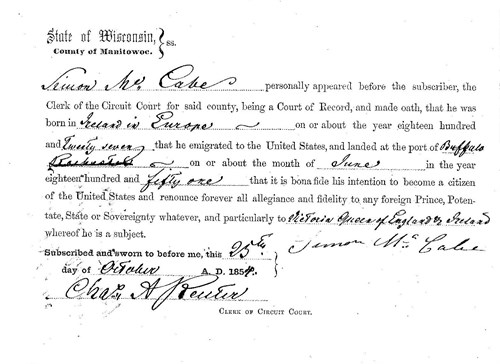 State of Wisconsin, } ss.
County of Manitowoc.
Simon Mc Cabe personally appeared before the subscriber, the
Clerk of the Circuit Court for said county, being a Court of Record, and made oath, that he was
born in Ireland in Europe on or about the year eighteen hundred
and Twenty seven, that he emigrated to the United States, and landed at the port of Buffalo
on or about the month of June in the year
eighteen hundred and fifty one that it is bona fide his intention to become a citizen
of the United States and renounce forever all allegiance and fidelity to any foreign Prince, Poten-
tate, State or Sovereignty whatever, and particularly to Victoria Queen of England & Ireland
whereof he is a subject.
Simon Mc Cabe
Subscribed and sworn to before me, this 25th
day of October A. D. 1854.
Chas A Reuter
CLERK OF CIRCUIT COURT.